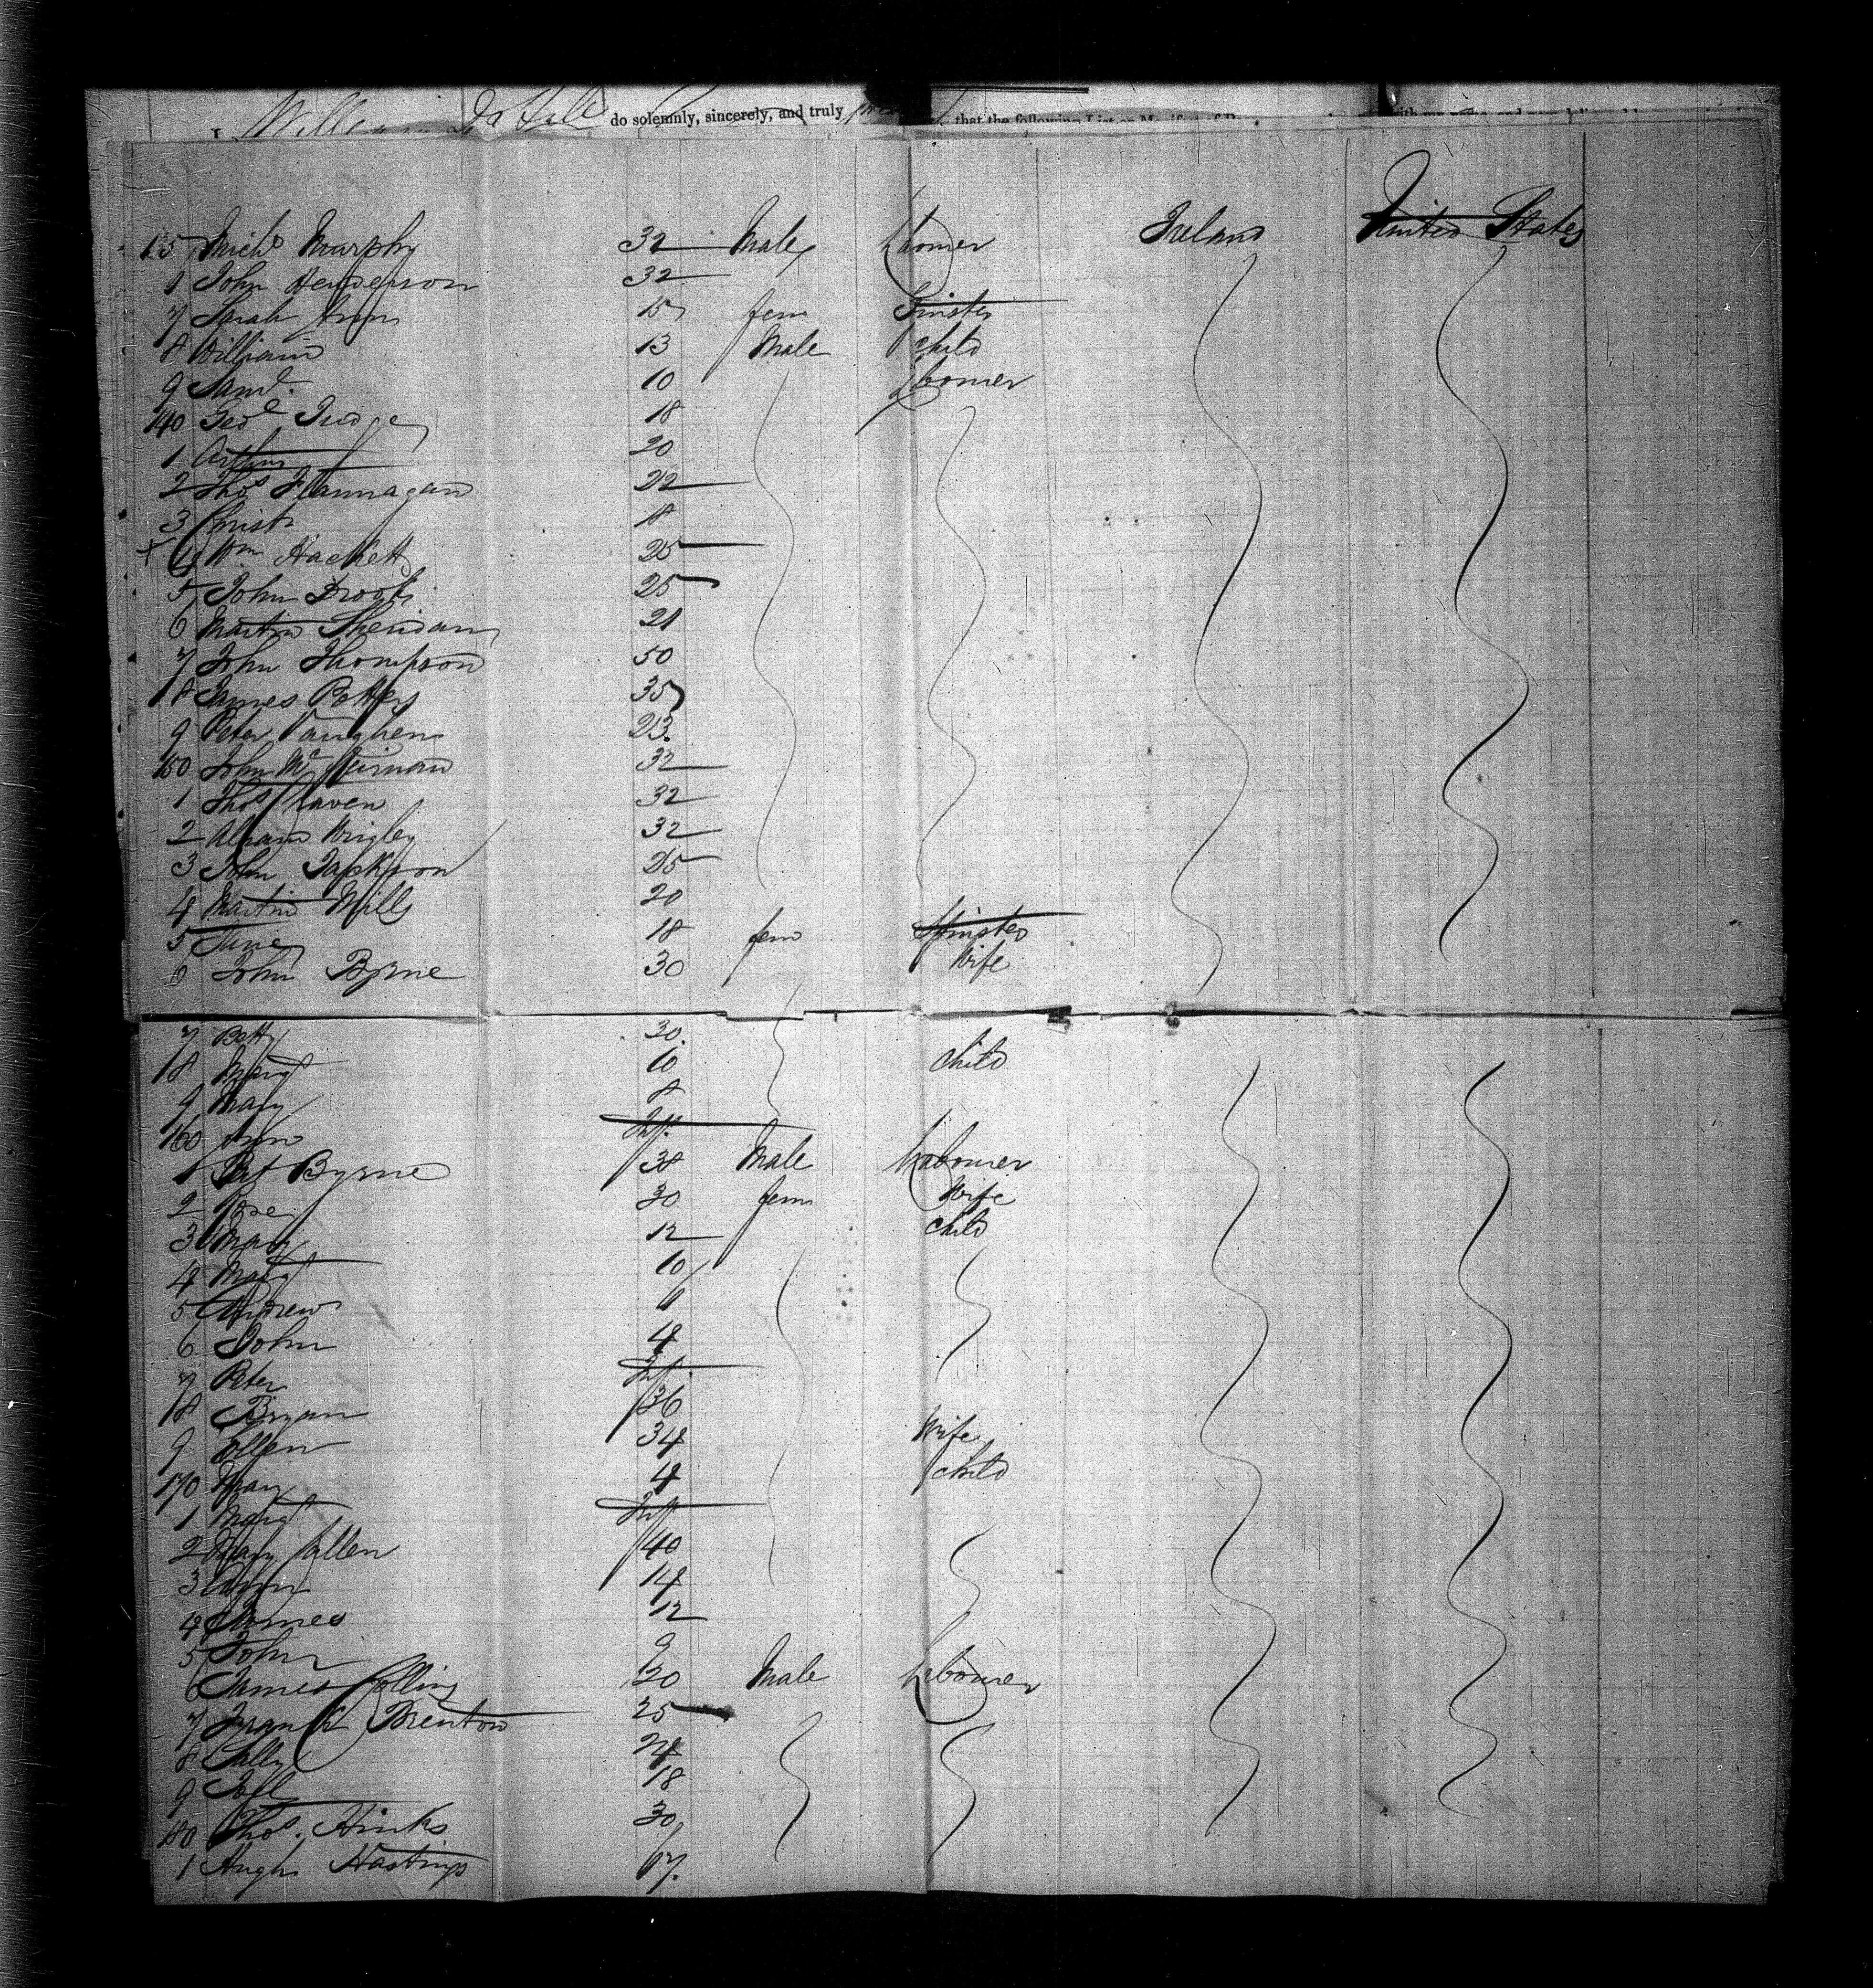 I William do solemnly, sincerely, and truly that the following List or Manifest of
135 Mich Murphy 32 Male Labourer Ireland United States
1 John Henderson 32
7 Sarah Ann 15 fem Spinster
8 William 13 Male Child
9 Saml. 10 Labourer
140 Geo Judge 18
1 Arthur 20
2 Thos Flannagan 22
3 Christr 18
+ 4 Wm Hackett 25
5 John Brooks 25
6 Martin Sheridan 21
7 John Thompson 50
8 James Potter 35
9 Peter Vaughen 23
150 John McKeirnan 32
1 Thos Craven 32
2 Abram Wrigley 32
3 John Jackson 25
4 Martin Mills 20
5 Jane 18 fem Spinster
6 John Byrne 30 Wife
7 Betty 30
8 Margt 10 Child
9 Mary 8
160 Ann Inft.
1 Pat Byrne 38 Male Labourer
2 Rose 30 fem Wife
3 Mary 12 Child
4 Margt 10
5 Andrew 6
6 John 4
7 Peter Inft.
8 Bryan 36
9 Ellen 34 Wife
170 Mary 4 Child
1 Margt Inft
2 Mary Callen 40
3 Ann 14
4 James 12
5 John 9
6 James Collins 30 Male Labourer
7 Frank Brenton 25
8 Sally 24
9 18
180 Thos. Hinks 30
1 Hugh Hastings 67.